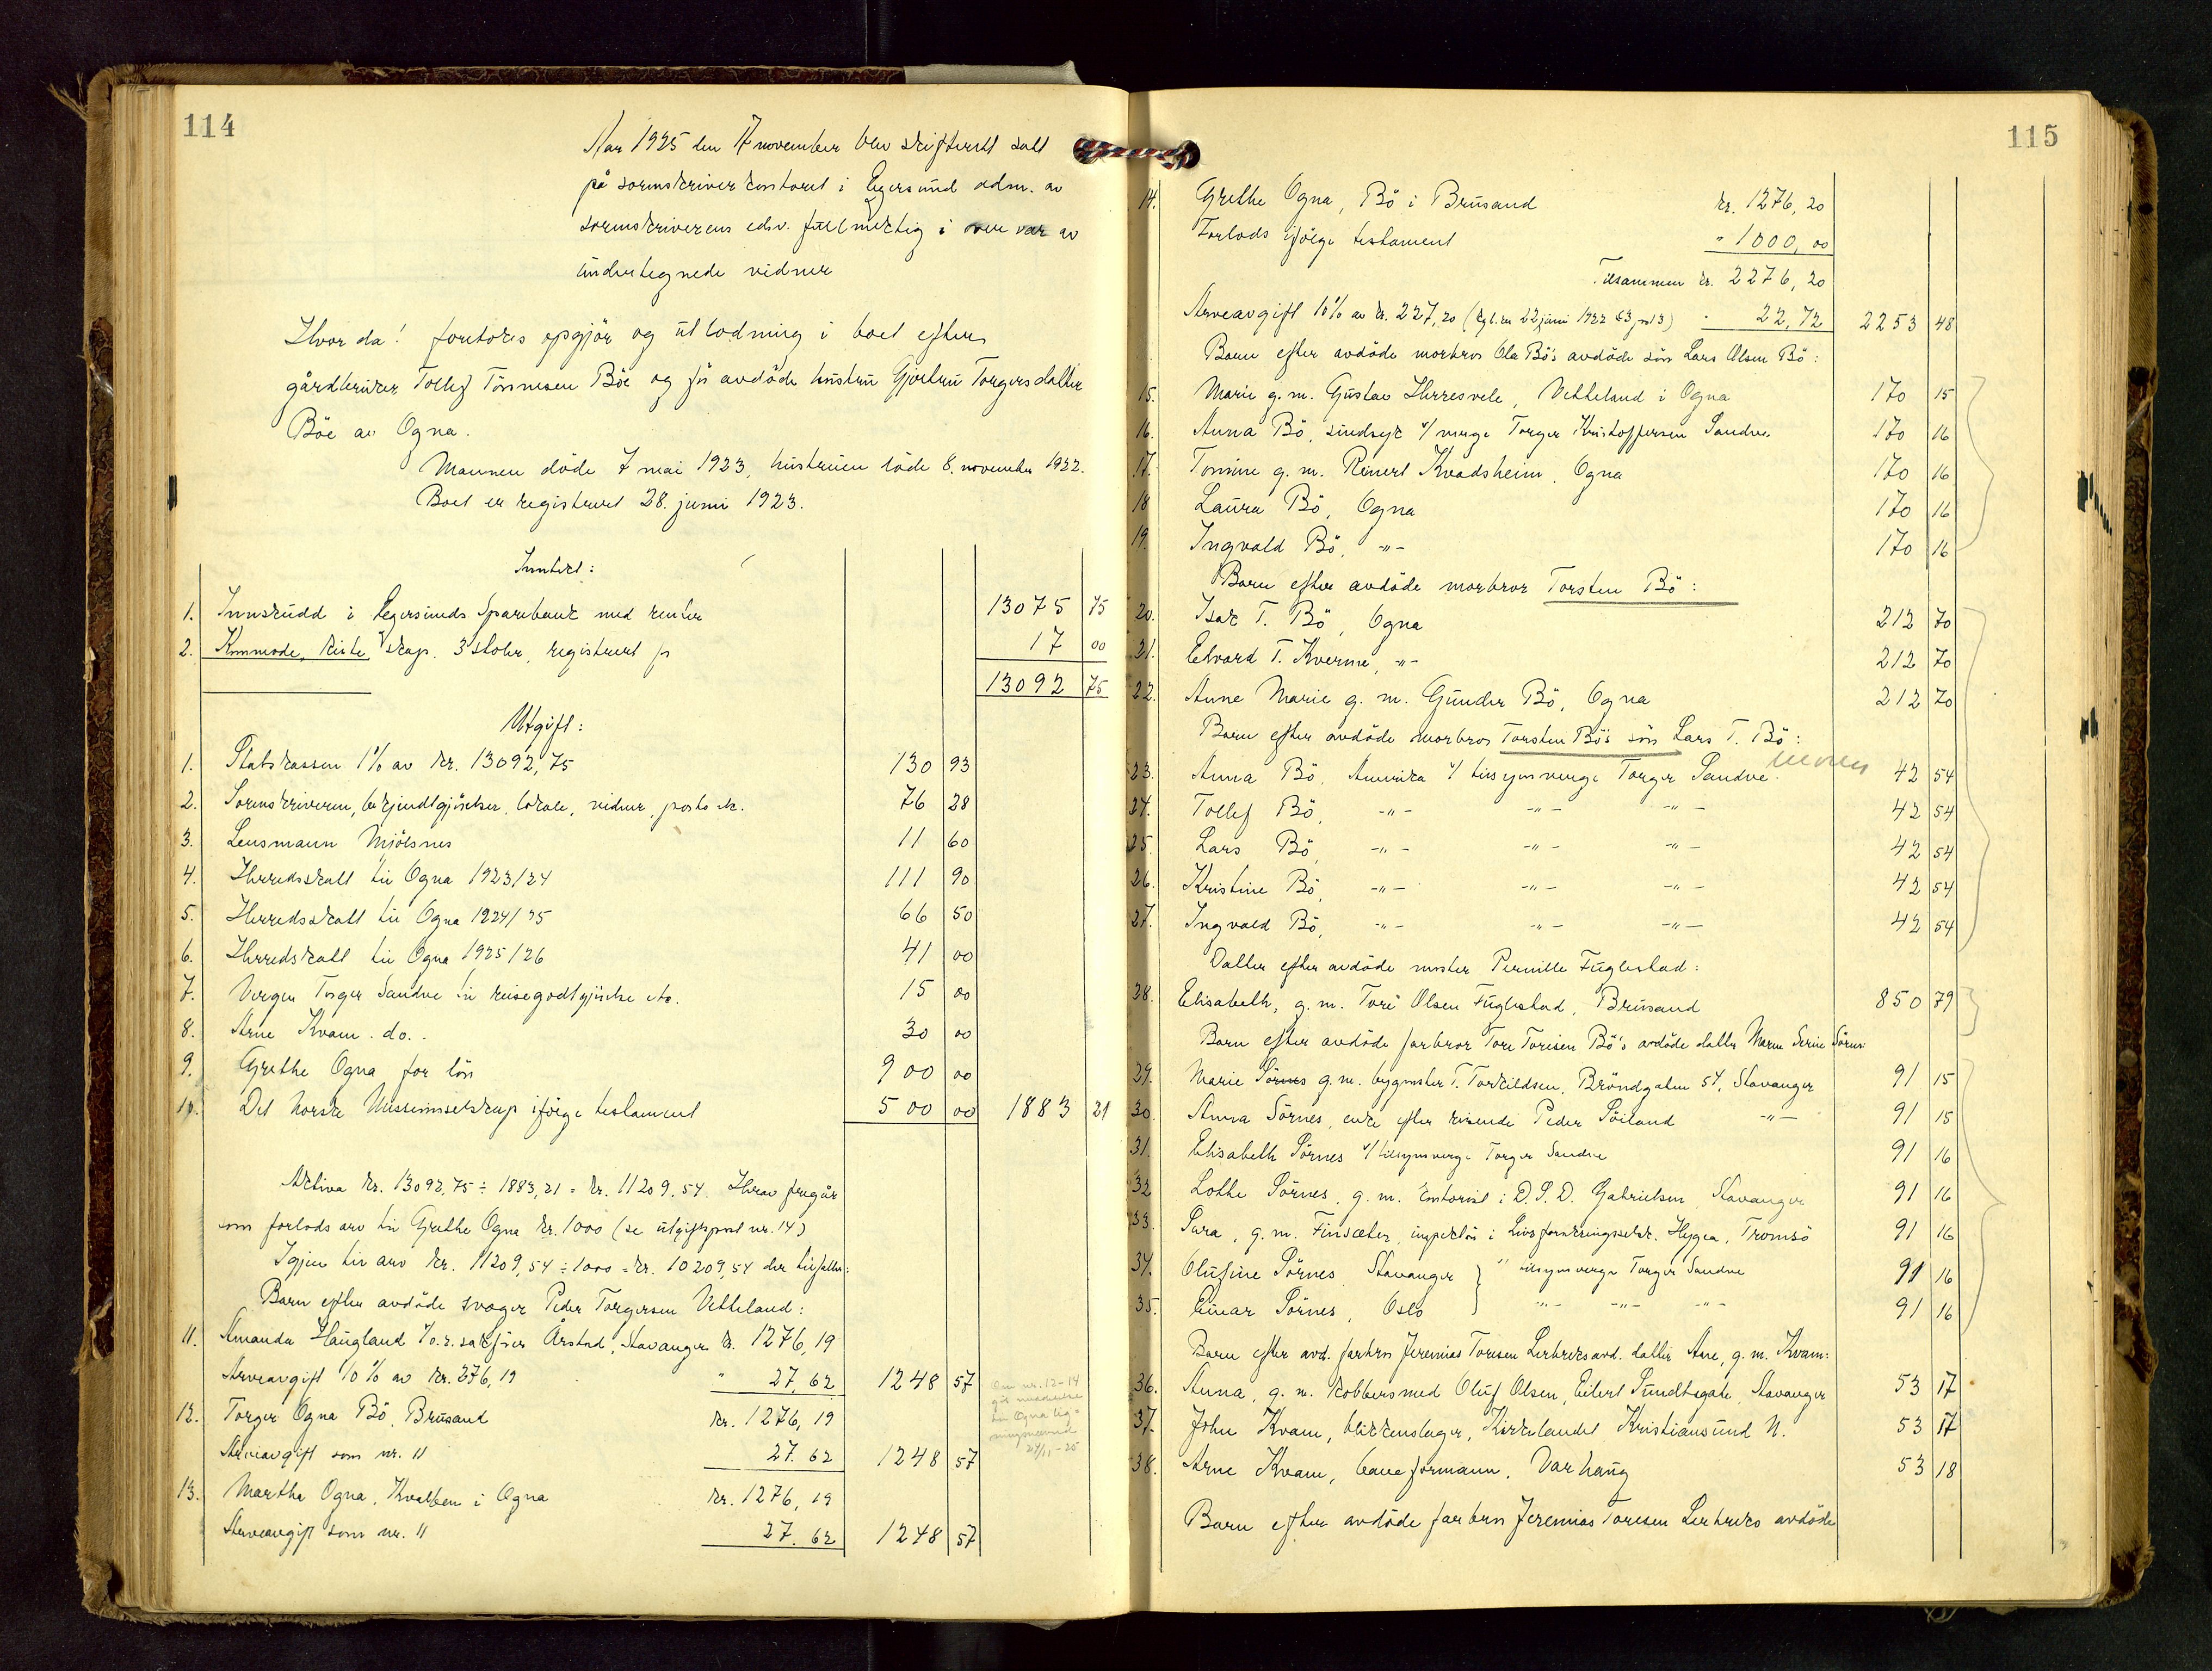 114
Aar 1925 den 17 november blev skifterett satt
på sorenskriverkontoret i Egersund adm. av
sorenskriverens edsv. fullmektig i overvær av
undertegnede vidner
Hvorda! foretokes opgjör og utlodning i boet efter
gårdbruker Tollef Tönnesen Böe og för avdöde hustru Gjertru Torgersdatter
Böe av Ogna.
Mannen döde 7 mai 1923, hustruen döde 8. november 1922.
Boet er registrert 28. juni 1923.
Inntekt:
1. Innskudd i Egersunds Sparebank med renter 13075 75
2. Kommode, kiste, skap, 3 stoler, registrert for 17 00
13092 75
Utgift:
1. Statskassen 1% av kr. 13092,75 130 93
2. Sorenskriveren, bekjendtgjörelser, lokale, vidner, porto etc. 76 28
3. Lensmann Mjölsnes 11 60
4. Herredsskatt til Ogna 1923/24 111 90
5. Herredsskatt til Ogna 1924/25 66 50
6. Herredskatt til Ogna 1925/26 41 00
7. Vergen Torger Sandve til reisegodtgjörelse etc. 15 00
8. Arne Kvam. do. 30 00
9. Grethe Ogna for lön 900 00
10. Det Norske Misjonsselskap ifölge testament 500 00 1883 21
Aktiva kr. 13092,75 ÷ 1883,21 = kr. 11209,54. Herav fregår
som forlods arv til Grethe Ogna kr. 1000 (se utgiftspost nr. 14)
Igjen til arv kr. 11209,54 ÷ 1000 = kr. 10209,54 der tilfaller:
Barn efter avdöde svoger Peder Torgersen Vetteland:
11. Amanda Haugland c/o. r. sakförer Årstad, Stavanger kr. 1276,19
Arveavgift 10% av kr. 276,19 " 27,62 1248 57
12. Torger Ogna Bö, Brusand kr. 1276,19
Arveavgift som nr. 11 27.62 1248 57
13. Martha Ogna, Kvalbein i Ogna kr. 1276,19
Arveavgift som nr. 11 27.62 1248 57
Om nr. 12-14
git meddelelse
til Ogna lig=
ningsnevnd
24/11-25
115
14. Grethe Ogna, Bö i Brusand kr. 1276,20
Forlods ifölge testament " 1000,00
Tilsammen kr. 2276,20
Arveavgift 10% av kr. 227,20 (kgl. res 22 juni 1922 § 3 pst 3) " 22,72 2253 48
Barn efter avdöde morbror Ola Bö's avdöde sön Lars Olsen Bö:
15. Marie g. m. Gustav Herresvele, Vetteland i Ogna 170 15
16. Anna Bö, sindsyk v/ verge Torger Kristoffersen Sandve 170 16
17. Tomine g. m. Reinert Kvadsheim, Ogna 170 16
18 Laura Bö, Ogna 170 16
19. Ingvald Bö, -"- 170 16
Barn efter avdöde morbror Torsten Bö:
20. Isak T. Bö, Ogna 212 70
21. Edvard T. Kverme, -"- 212 70
22. Anne Marie g. m. Gunder Bö, Ogna 212 70
Barn efter avdöde morbror Torsten Bö's sön Lars T. Bö:
23. Anna Bö, Amerika v/ tilsynsverge Torger Sandve 42 54
24. Tollef Bö, -"- -"- -"- 42 54
25. Lars Bö, -"- -"- -"- 42 54
26. Kristine Bö, -"- -"- -"- 42 54
27. Ingvald Bö, -"- -"- -"- 42 54
Datter efter avdöde moster Pernille Fuglestad:
28. Elisabeth, g. m. Tore Olsen Fuglestad, Brusand 850 79
Barn efter avdöde farbror Tore Toresen Bö's avdöde datter Maren Serine Sörnes
29. Marie Sörnes g. m. bygmester T. Torkildsen, Bröndgaten 54, Stavanger 91 15
30. Anna Sörnes, enke efter reisende Peder Söiland -"- 91 15
31. Elisabeth Sörnes v/ tilsynsverge Torger Sandve 91 16
32 Lotte Sörnes, g. m. kontorist i D.S.D. Gabrielsen, Stavanger 91 16
33. Sara, g. m. Finsæter, inspektör i Livsforsikringsselsk. Hygea, Tromsö 91 16
34. Olufine Sörnes, Stavanger } v/ tilsynsverge Torger Sandve 91 16
35. Einar Sörnes, Oslo } -"- -"- -"- 91 16
Barn efter avd. farbror Jeremias Toresen Lerbreks avd. datter Ane, g. m. Kvam:
36. Anna, g. m. kobbersmed Oluf Olsen, Eilert Sundtsgate, Stavanger 53 17
37. John Kvam, blikkenslager, Kirkelandet Kristiansund N. 53 17
38. Arne Kvam, baneformann, Varhaug 53 18
Barn efter avdöde farbror Jeremias Toresen Lerbreks avdöde